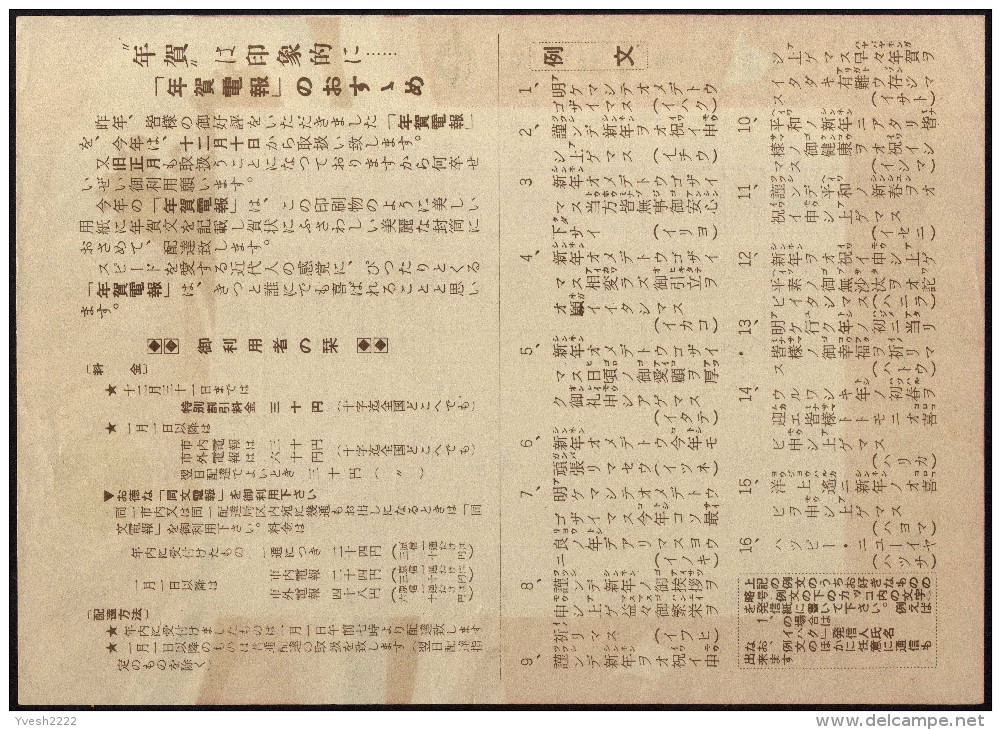 “年賀”は印象的に……
「年賀電報」のおすゝめ
昨年、皆様の御好評をいただきました「年賀電報」
を、今年は、十二月十日から取扱い致します。
又旧正月も取扱うことになっておりますから何卒せ
いぜい御利用願います。
今年の「年賀電報」は、この印刷物のように美しい
用紙に年賀文を記載し賀状にふさわしい美麗な封筒に
おさめて、配達致します。
スピードを愛する近代人の感覚に、ぴったりとくる
「年賀電報」は、きっと誰にでも喜ばれることと思い
ます。
御利用者の栞
〔料金〕
★ 十二月三十一日までは
特別割引料金 三十円 （十字迄全国どこへでも）
★ 一月一日以降は
市内電報は 三十円
市外電報は 六十円 （十字迄全国どこへでも）
翌日配達でよいとき 三十円 （〃）
▼お徳な「同文電報」を御利用下さい
同一市内又は同一配達局区内宛に幾通もお出しになるときは「同
文電報」を御利用下さい。料金は
年内に受付けたもの 一通につき 二十四円
一月一日以降は 市内電報 二十四円
市外電報 四十八円
〔配達方法〕
★ 年内に受付けましたものは一月一日午前七時より配達致します
★ 一月一日以降のものは普通配達の取扱を致します（翌日配達指
定のものを除く）
例文
1、明ケマシテオメデトウ
ゴザイマス（イハク）
2、謹ンデ新年ヲオ祝イ申
シ上ゲマス（イチウ）
3 新年オメデトウゴザイ
マス当方皆無事御安心
下サイ（イリヨ）
4、新年オメデトウゴザイ
マス相変ラズ御引キ立ヲ
オ願イイタシマス
（イカコ）
5、新年オメデトウゴザイ
マス日頃ノ御愛顧ヲ厚
ク御礼申シアゲマス
（イタテ）
6、新年オメデトウ今年モ
頑張リマセウ（イツネ）
7、明ケマシテオメデトウ
ゴザイマス今年コソ最
良ノ年デアリマスヨウ
ニ（イノキ）
8、謹ンデ新年ノ御挨拶ヲ
申シ上ゲ益々御繁栄ヲ
祈リマス（イワヒ）
9、謹ンデ新年ヲオ祝イ申
シ上ゲマス早々年賀ヲ
イタダキ有難ウ存ジマ
ス（イサト）
10、平和ノ新年ニアタリ皆
様ノ御健康ヲオ祝イシ
マス（イマシ）
11、謹ンデ平和ノ新春ヲオ
祝イ申シ上ゲマス
（イセニ）
12、新年ヲオ祝イ申シ上ゲ
平素ノ御無沙汰ヲオ詫
ビイタシマス
13、明ケ行ク年ノ初ニ当リ
皆様ノ御幸福ヲ祈リマ
ス
14、ウルワシキ年ノ初春ヲ
迎エ皆様トトモニオ喜
ビ申シ上ゲマス
（ハリカ）
15、洋上遙カニ新年ノオ喜
ビヲ申シ上ゲマス
（ハヨマ）
16、ハッピー・ニューイヤ
（ハツサ）
上記の例文のうちお好きなもの
Yvesh2222
delcampe.net